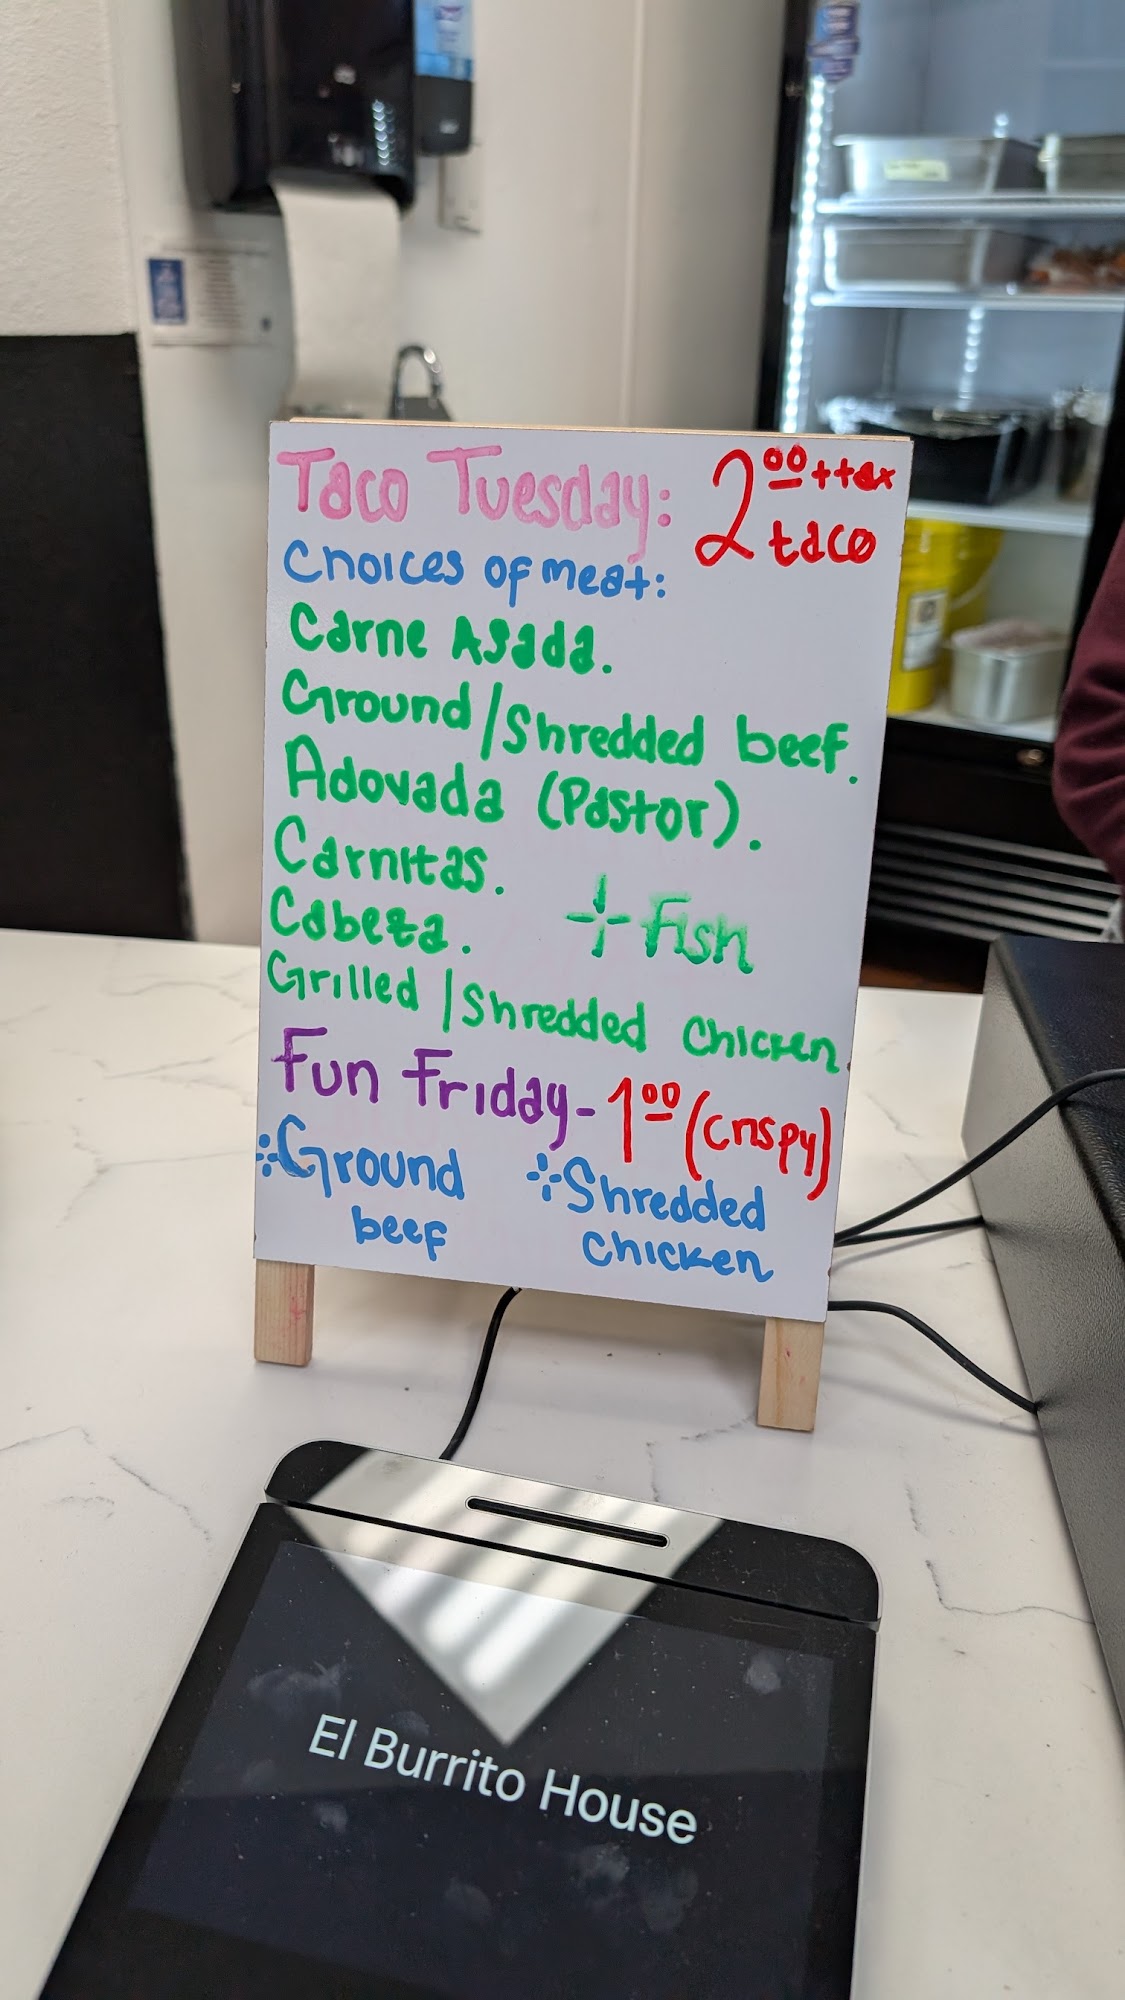 Taco Tuesday: 2⁰⁰ + tax
taco
Choices of meat:
Carne Asada.
Ground/Shredded beef.
Adovada (Pastor).
Carnitas.
Cabeza. + Fish
Grilled/Shredded Chicken
Fun Friday- 1⁰⁰ (crispy)
Ground beef
Shredded chicken
El Burrito House